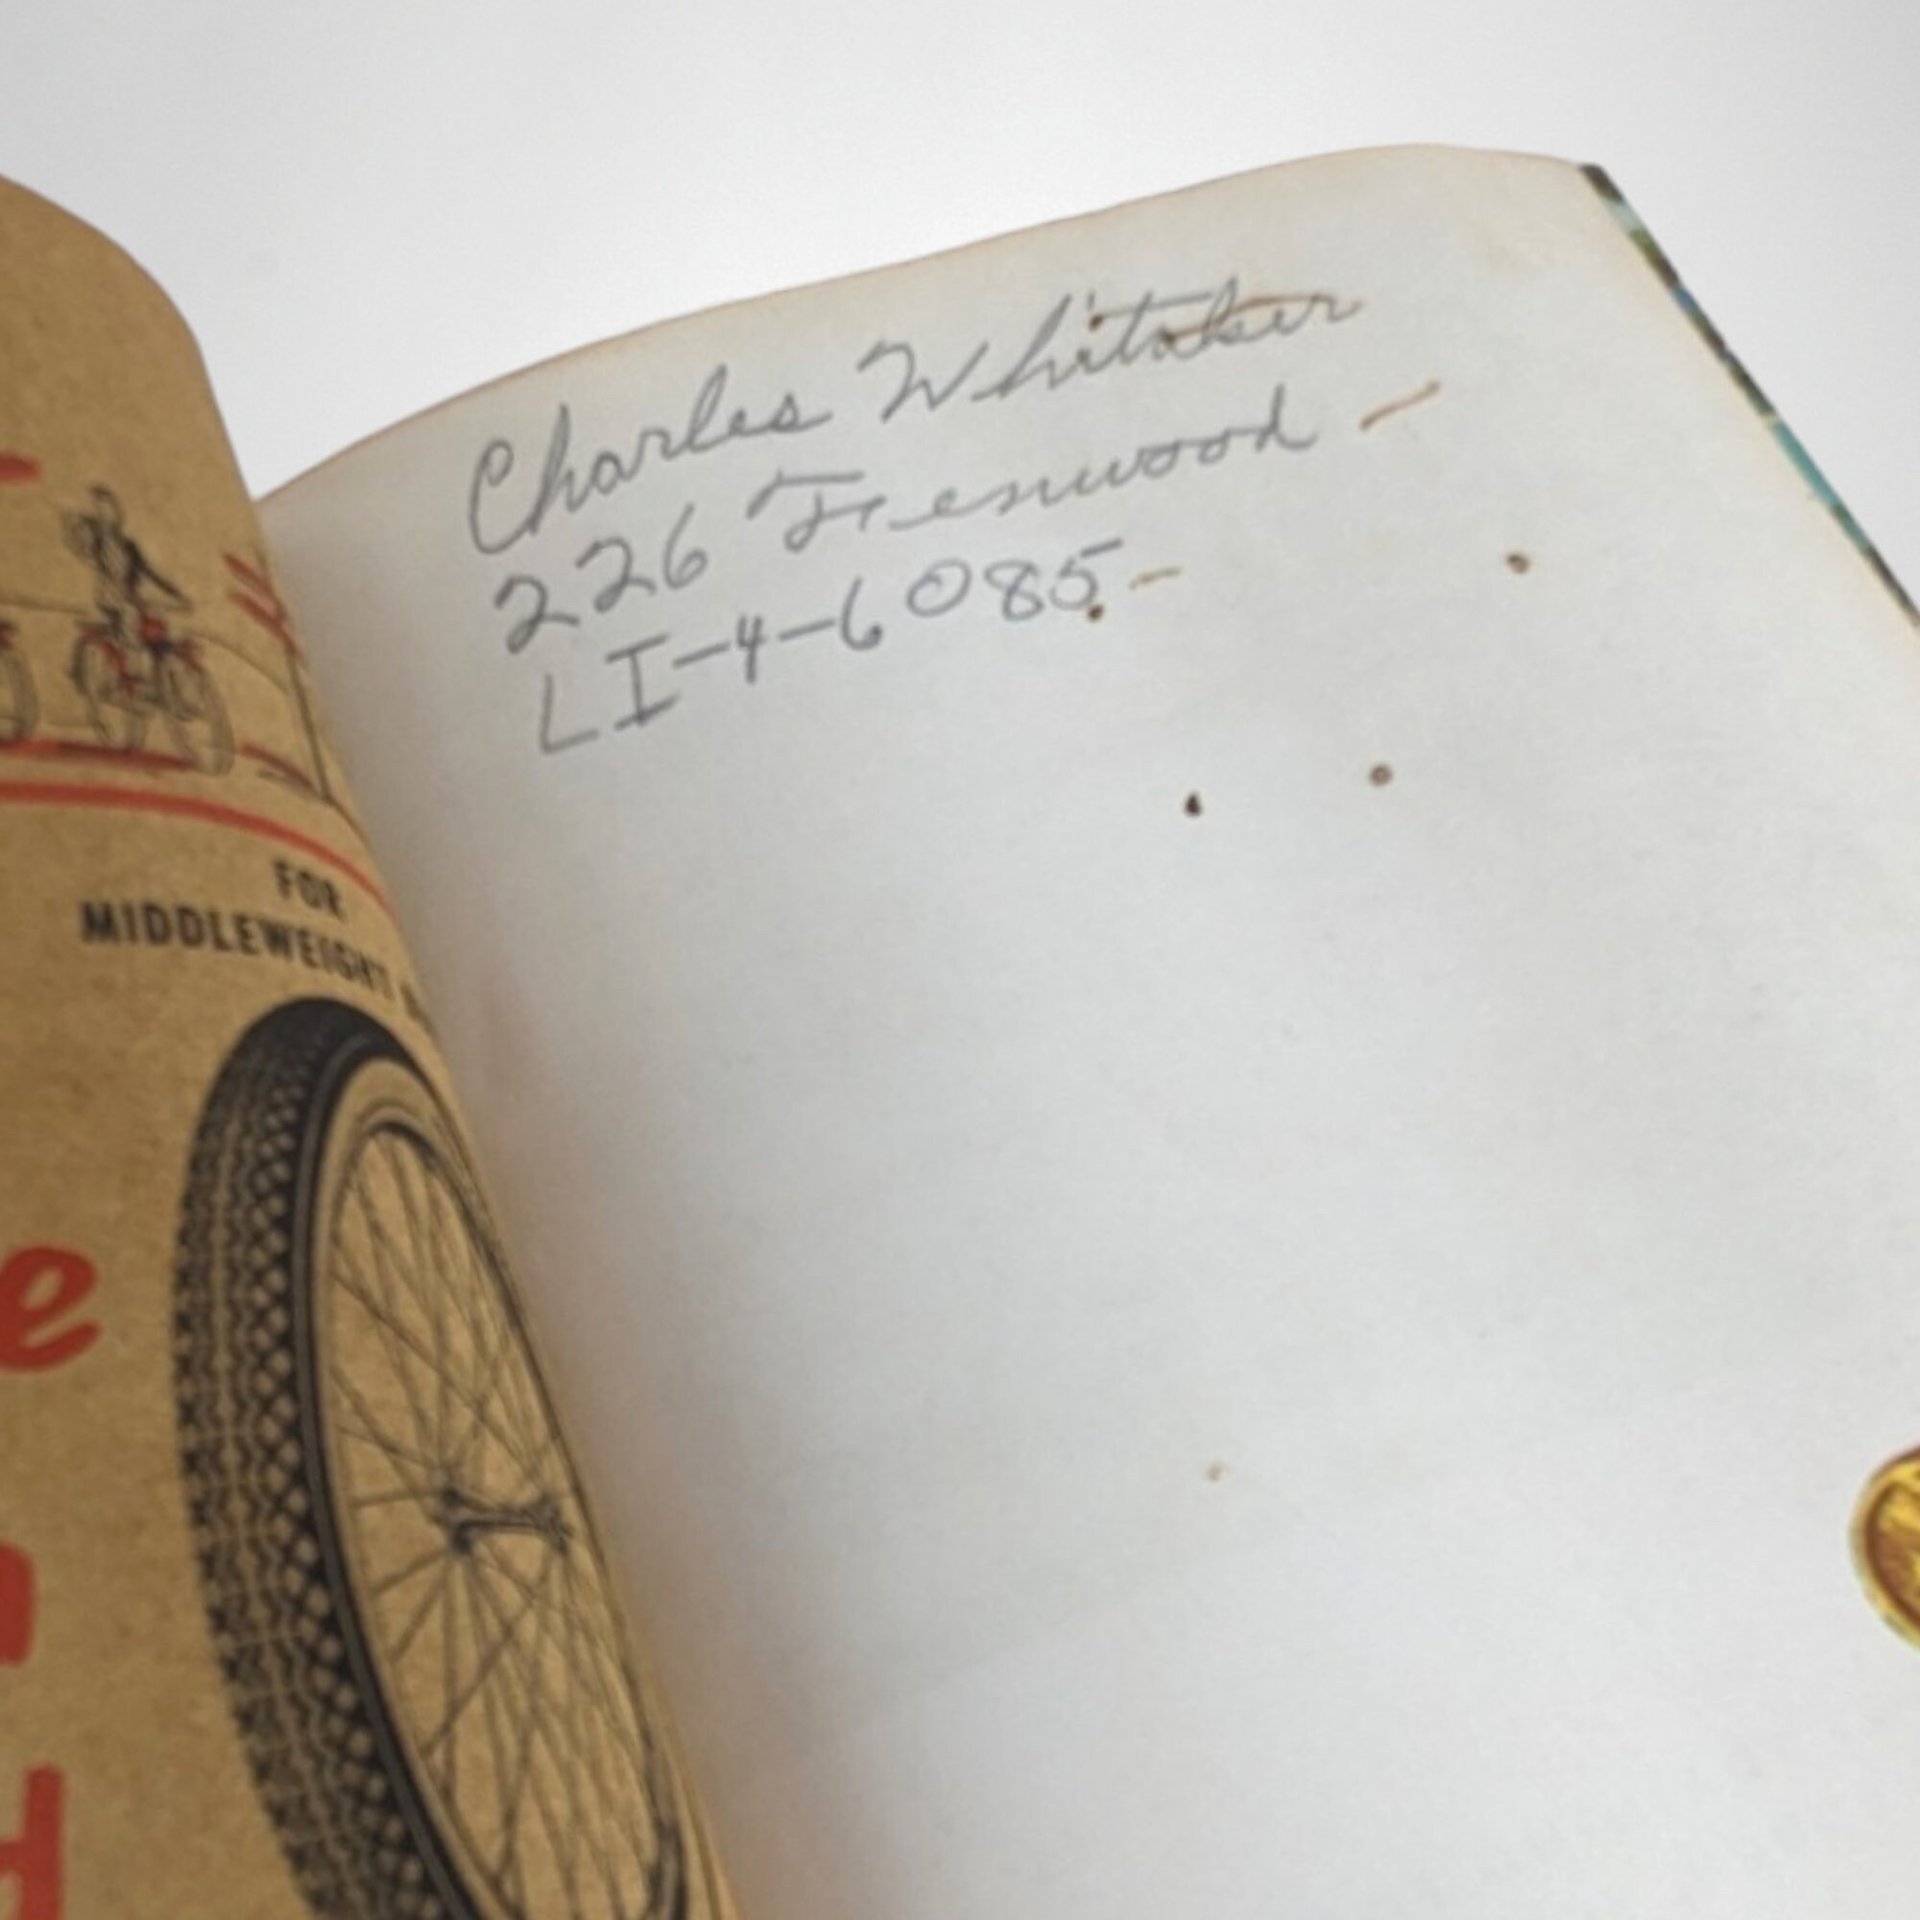 Charles Whitaker
226 Fernwood
LI-4-6085
FOR
MIDDLEWEIGHT
e
d